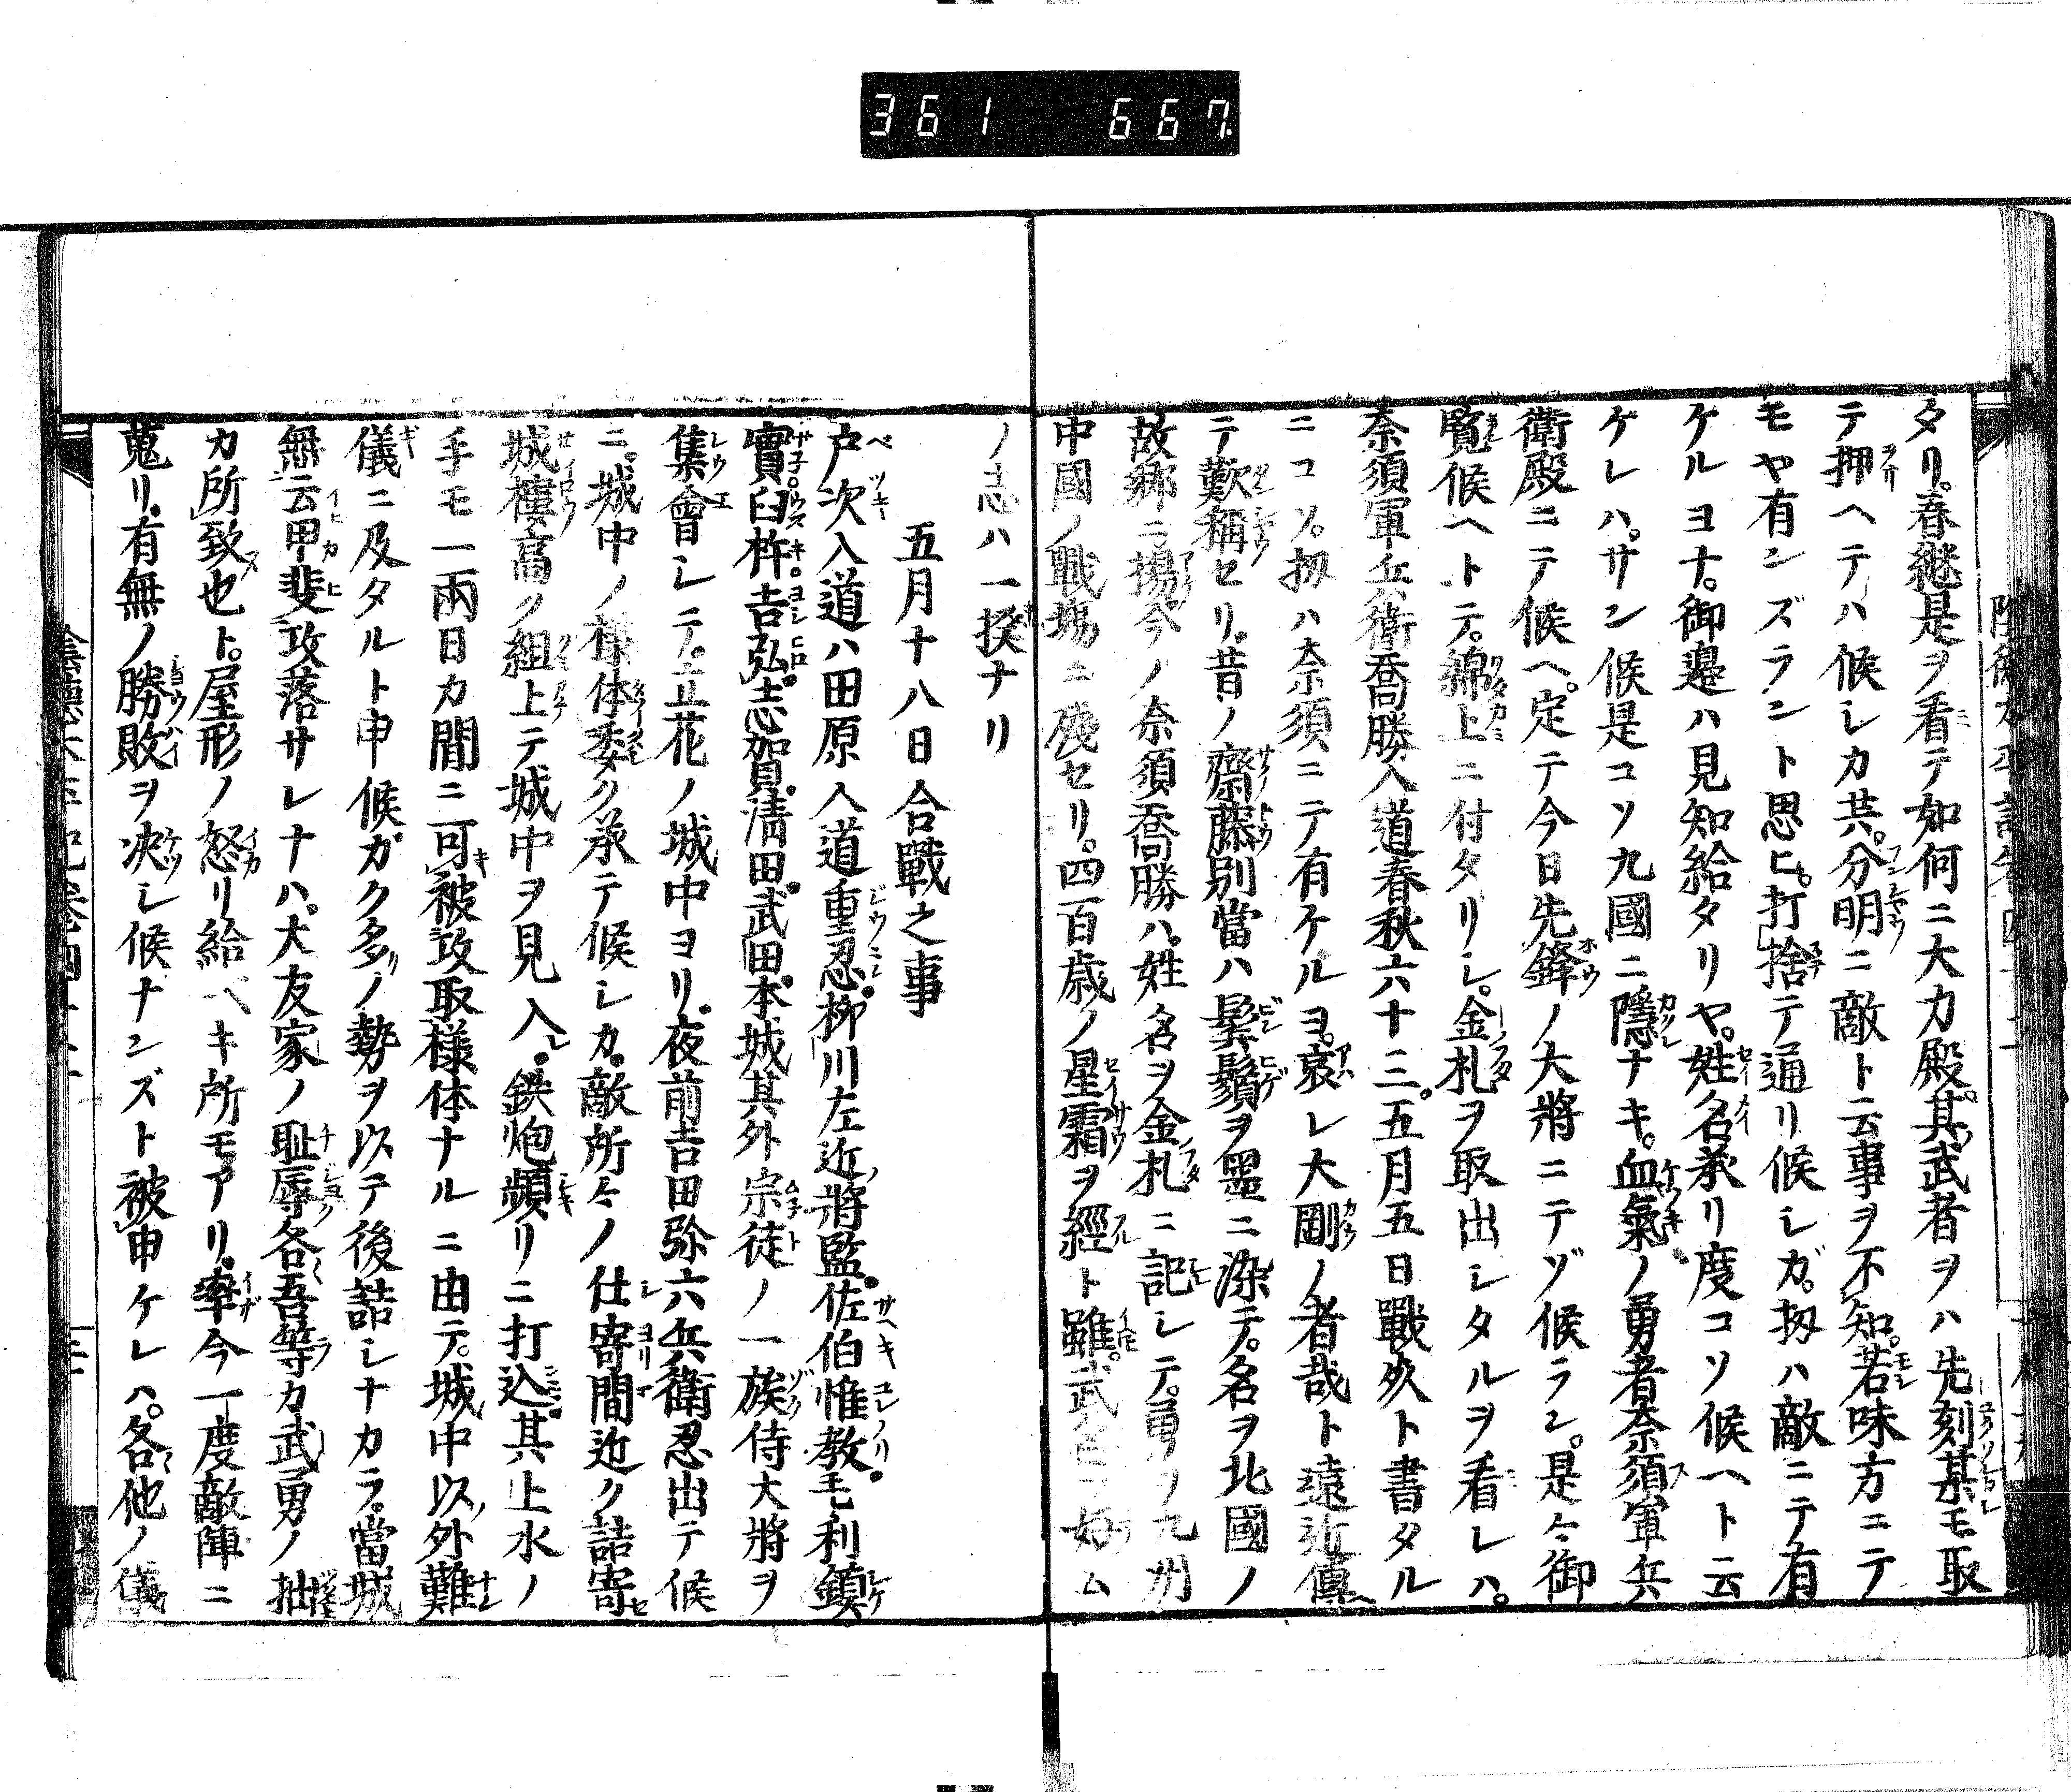 361 667
タリ。春継是ヲ看テ如何ニ大力殿。其武者ヲハ先刻某モ取
テ押ヘテハ候シカ共。分明ニ敵ト云事ヲ不知。若味方ニテ
モヤ有ンズラント思ヒ。打捨テ通リ候シガ。扨ハ敵ニテ有
ケルヨナ。御邉ハ見知給タリヤ。姓名承リ度コソ候ヘト云
ケレハ。サン候是コソ九國ニ隱ナキ。血氣ノ勇者奈須軍兵
衛殿ニテ候ヘ。定テ今日先鋒ノ大將ニテゾ候ラン。是々御
覧候ヘトテ。綿上ニ付タリシ。金札ヲ取出シタルヲ看レハ。
奈須軍兵衛喬勝入道春秋六十三。五月五日戰死ト書タル
ニコソ。扨ハ奈須ニテ有ケルヨ。哀レ大剛ノ者哉ト遠近傳ヘ
テ歎稱セリ。昔ノ齋藤別當ハ鬂鬚ヲ墨ニ染テ。名ヲ北國ノ
故郷ニ揚。今ノ奈須喬勝ハ。姓名ヲ金札ニ記シテ。勇ヲ九州
中國ノ戰塲ニ残セリ。四百歳ノ星霜ヲ經ト雖。武名ヲ好ム
ノ志ハ一揆ナリ
五月十八日合戰之事
戸次入道ハ田原入道重忍。柳川左近將監。佐伯惟教。毛利鎮
實。臼杵。吉弘。志賀。清田。武田。本城其外宗徒ノ一族侍大將ヲ
集會シテ。立花ノ城中ヨリ。夜前吉田弥六兵衛忍出テ候
ニ。城中ノ様体委ク承テ候シカ。敵所々ノ仕寄間近ク詰寄
城樓高ク組上テ城中ヲ見入。鉄炮頻リニ打込。其上水ノ
手モ一兩日カ間ニ可被攻取様体ナルニ由テ。城中以外難
儀ニ及タルト申候ガク多ノ勢ヲ以テ後詰シナカラ。當城
無云甲斐攻落サレナハ。大友家ノ耻辱各吾等カ武勇ノ拙
カ所致也ト。屋形ノ怒リ給ベキ所モアリ。率今一度敵陣ニ
蒐リ。有無ノ勝敗ヲ决シ候ナンズト被申ケレハ。各他ノ儀